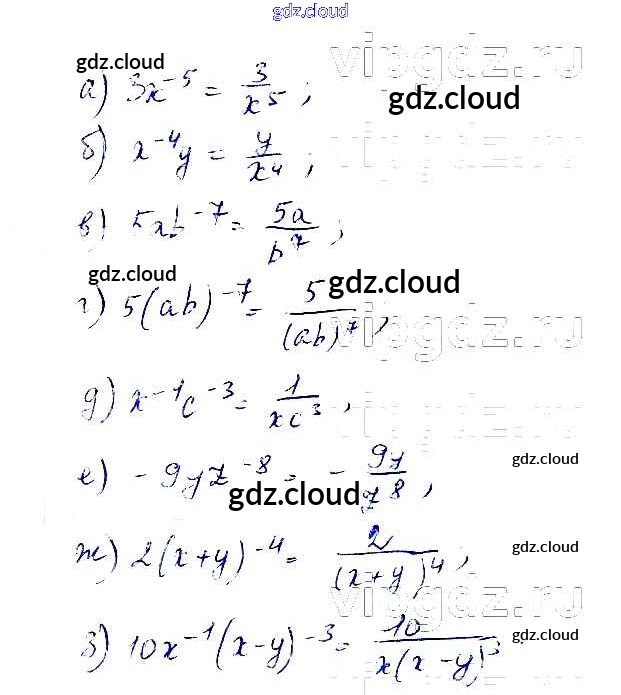 gdz.cloud
gdz.cloud
vipgdz.ru
а) 3x⁻⁵ = 3/x⁵ ;
gdz.cloud
б) x⁻⁴y = y/x⁴ ;
vipgdz.ru
в) 5ab⁻⁷ = 5a/b⁷ ;
gdz.cloud
gdz.cloud
г) 5(ab)⁻⁷ = 5/(ab)⁷ ,
vipgdz.ru
д) x⁻¹c⁻³ = 1/xc³ ,
vipgdz.ru
е) -9yz⁻⁸ = - 9y/z⁸ ,
gdz.cloud
gdz.cloud
ж) 2(x+y)⁻⁴ = 2/(x+y)⁴ ,
gdz.cloud
vipgdz.ru
з) 10x⁻¹(x-y)⁻³ = 10/x(x-y)³
gdz.cloud